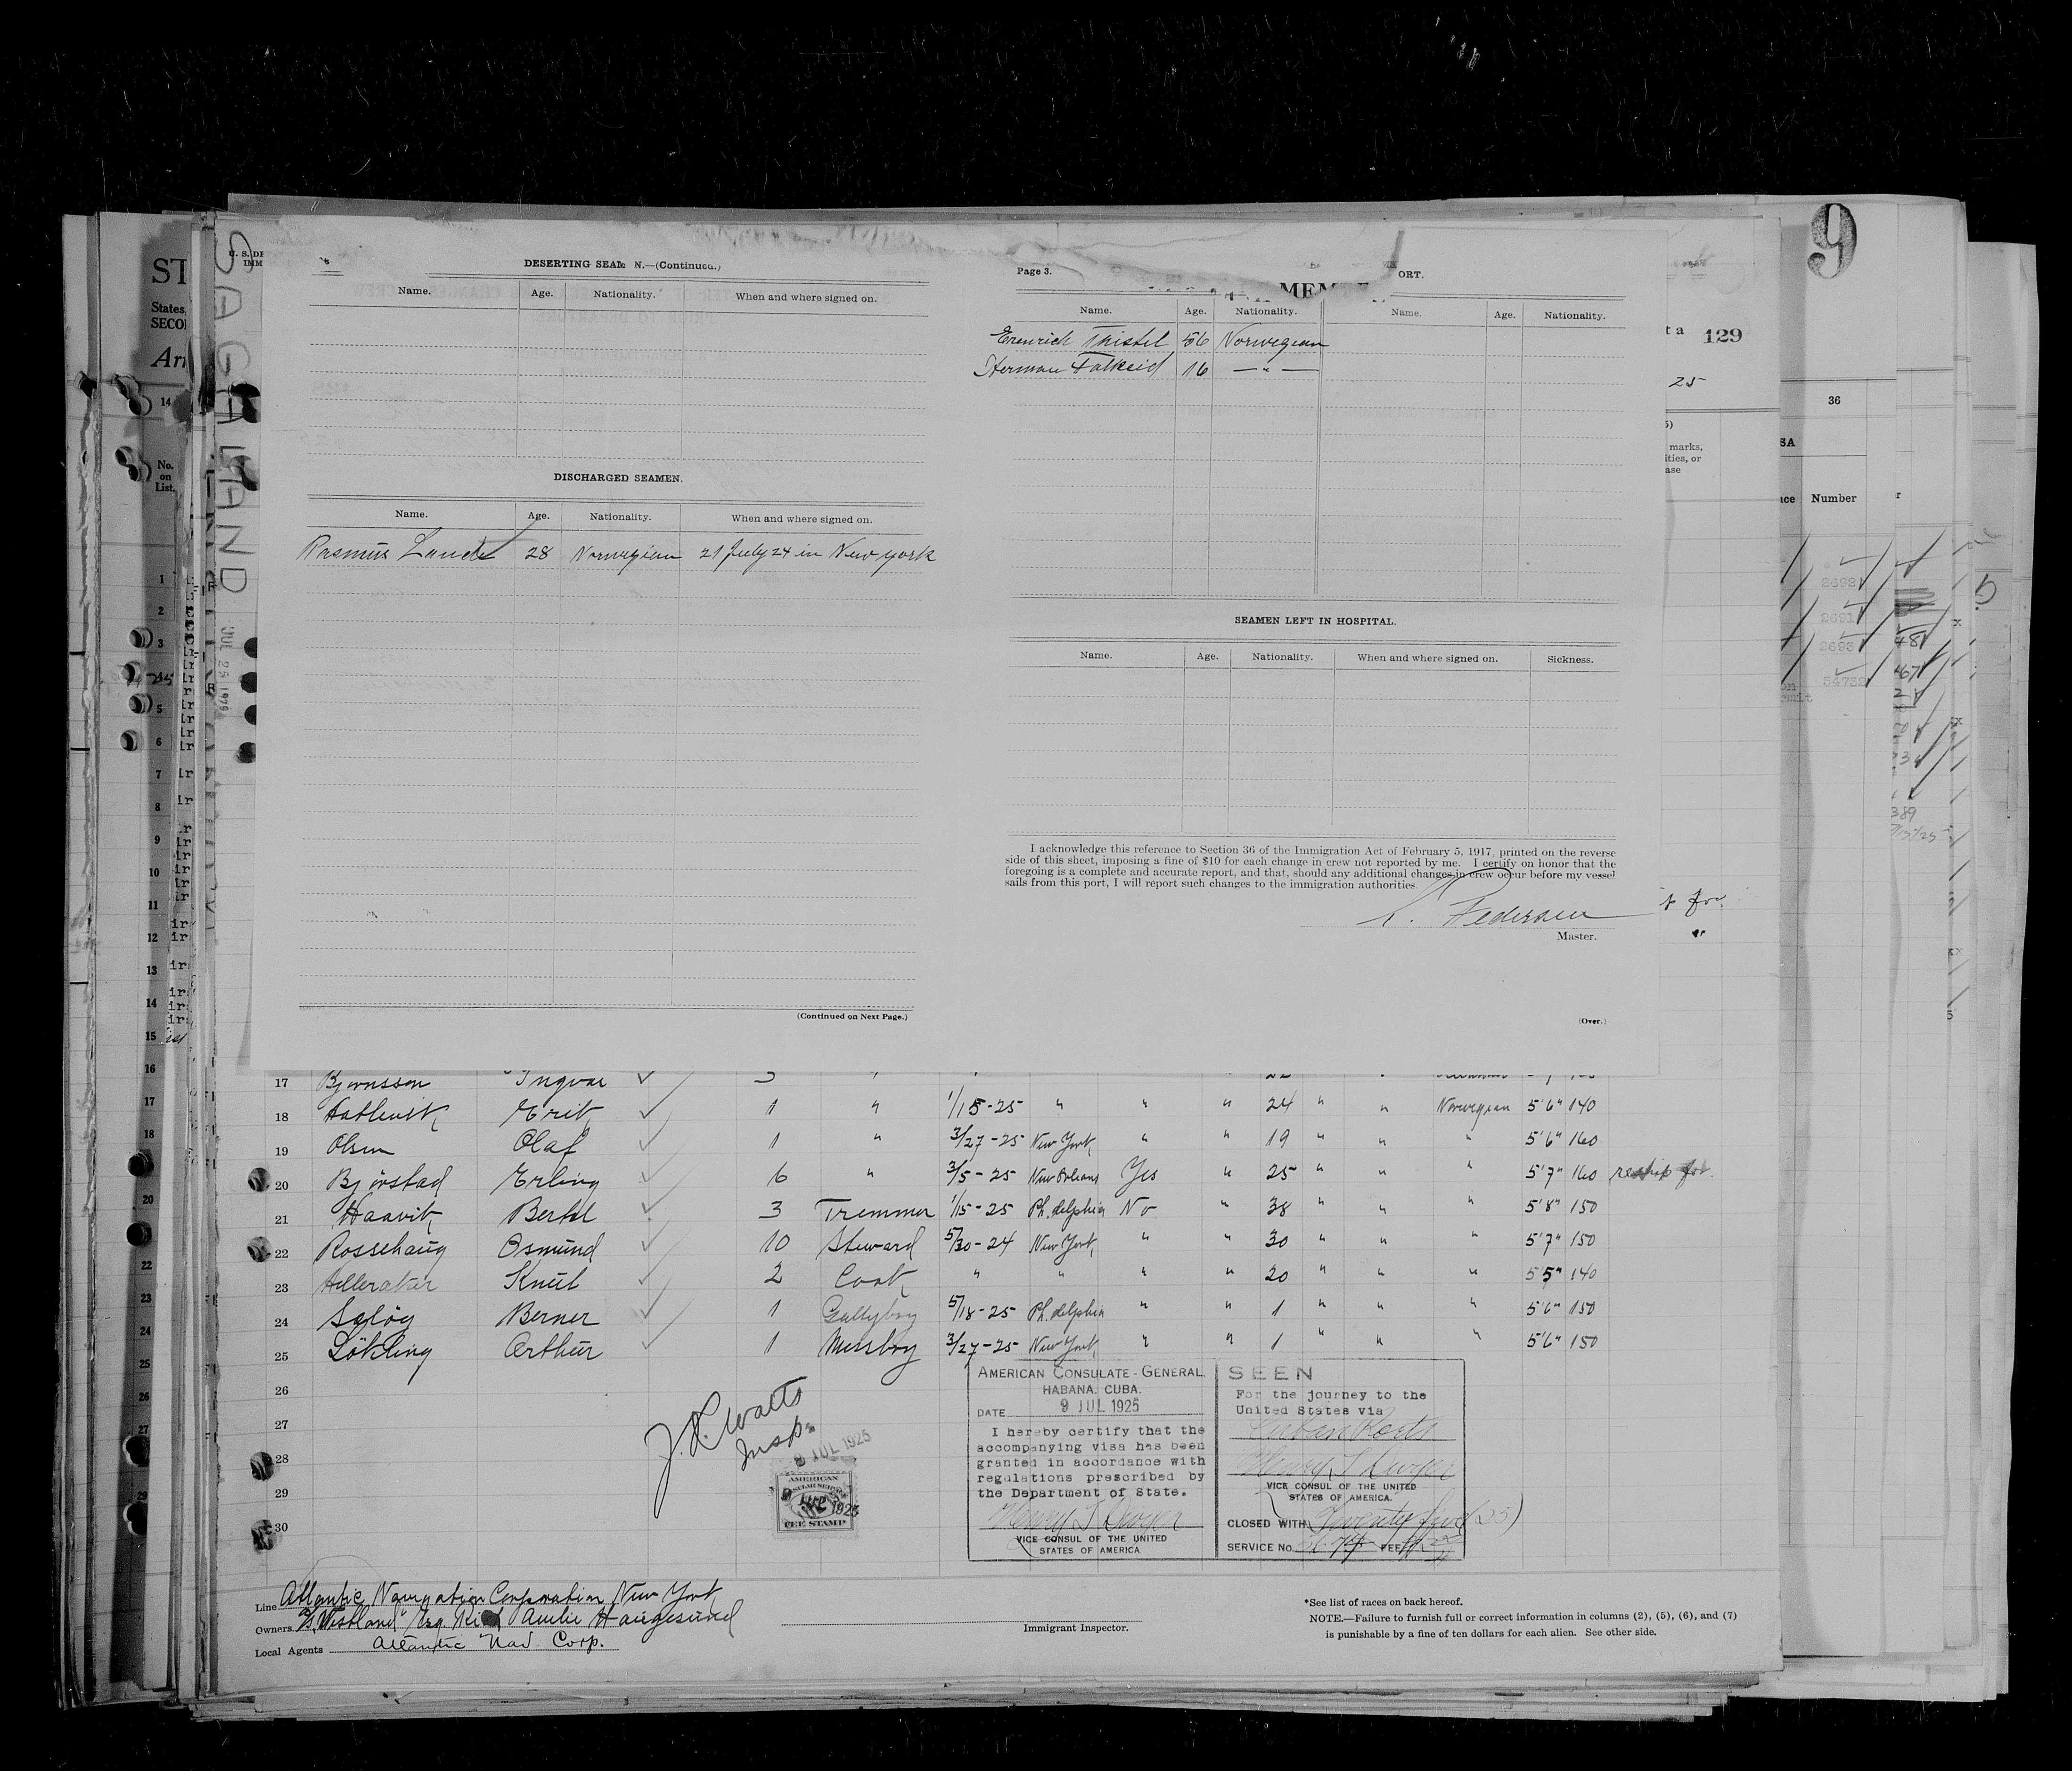 SAGALAND
JUL 25 1979
U. S. DE
IMM
DESERTING SEAM N.—(Continued.)
Name. Age. Nationality. When and where signed on.
DISCHARGED SEAMEN.
Name. Age. Nationality. When and where signed on.
Rasmus Lande 28 Norwegian 21 July 24 in New york
(Continued on Next Page.)
Page 3.
ORT.
MEM
Name. Age. Nationality. Name. Age. Nationality.
Thistel 56 Norwegian
Herman Falkeid 16 — " —
SEAMEN LEFT IN HOSPITAL.
Name. Age. Nationality. When and where signed on. Sickness.
I acknowledge this reference to Section 36 of the Immigration Act of February 5, 1917, printed on the reverse
side of this sheet, imposing a fine of $10 for each change in crew not reported by me. I certify on honor that the
foregoing is a complete and accurate report, and that, should any additional changes in crew occur before my vessel
sails from this port, I will report such changes to the immigration authorities.
Pedersen
Master.
(Over.)
9
ST
States
SECO
Arr
14
No.
on
List.
t a 129
25
marks,
ities, or
ase
36
SA
ice Number
17 Bjørnsson Ingvar
18 Erik 1 " 1/15-25 " " " 24 " " Norwegian 5'6" 140
19 Olsen Olaf 1 " 3/27-25 New York " " 19 " " " 5'6" 160
20 Bjørstad Erling 6 " 3/5-25 New Orleans Yes " 25 " " " 5'7" 160
21 Haavik Bertel 3 Tremmer 1/15-25 Ph.delphia No " 38 " " " 5'8" 150
22 Rossehaug Osmund 10 Steward 5/30-24 New York " " 30 " " " 5'7" 150
23 Knut 2 Cook " " " " 20 " " " 5'5" 140
24 Saløy Berner 1 Gallyboy 5/18-25 Ph.delphia " " 1 " " " 5'6" 150
25 Lökling Arthur 1 Messboy 3/27-25 New York " " 1 " " " 5'6" 150
26
27
28
29
30
J. R. Watts
Insp.
9 JUL 1925
AMERICAN
FEE STAMP
AMERICAN CONSULATE-GENERAL
HABANA, CUBA.
DATE 9 JUL 1925
I hereby certify that the
accompanying visa has been
granted in accordance with
regulations prescribed by
the Department of State.
Henry T Dwyer
VICE CONSUL OF THE UNITED
STATES OF AMERICA
SEEN
For the journey to the
United States via
Cuban Ports
Henry T Dwyer
VICE CONSUL OF THE UNITED
STATES OF AMERICA.
CLOSED WITH Twenty five (25)
SERVICE No. FEE
Line Atlantic Navigation Corporation New York
Owners Haugesund
Local Agents Atlantic Nav. Corp.
Immigrant Inspector.
*See list of races on back hereof.
NOTE.—Failure to furnish full or correct information in columns (2), (5), (6), and (7)
is punishable by a fine of ten dollars for each alien. See other side.